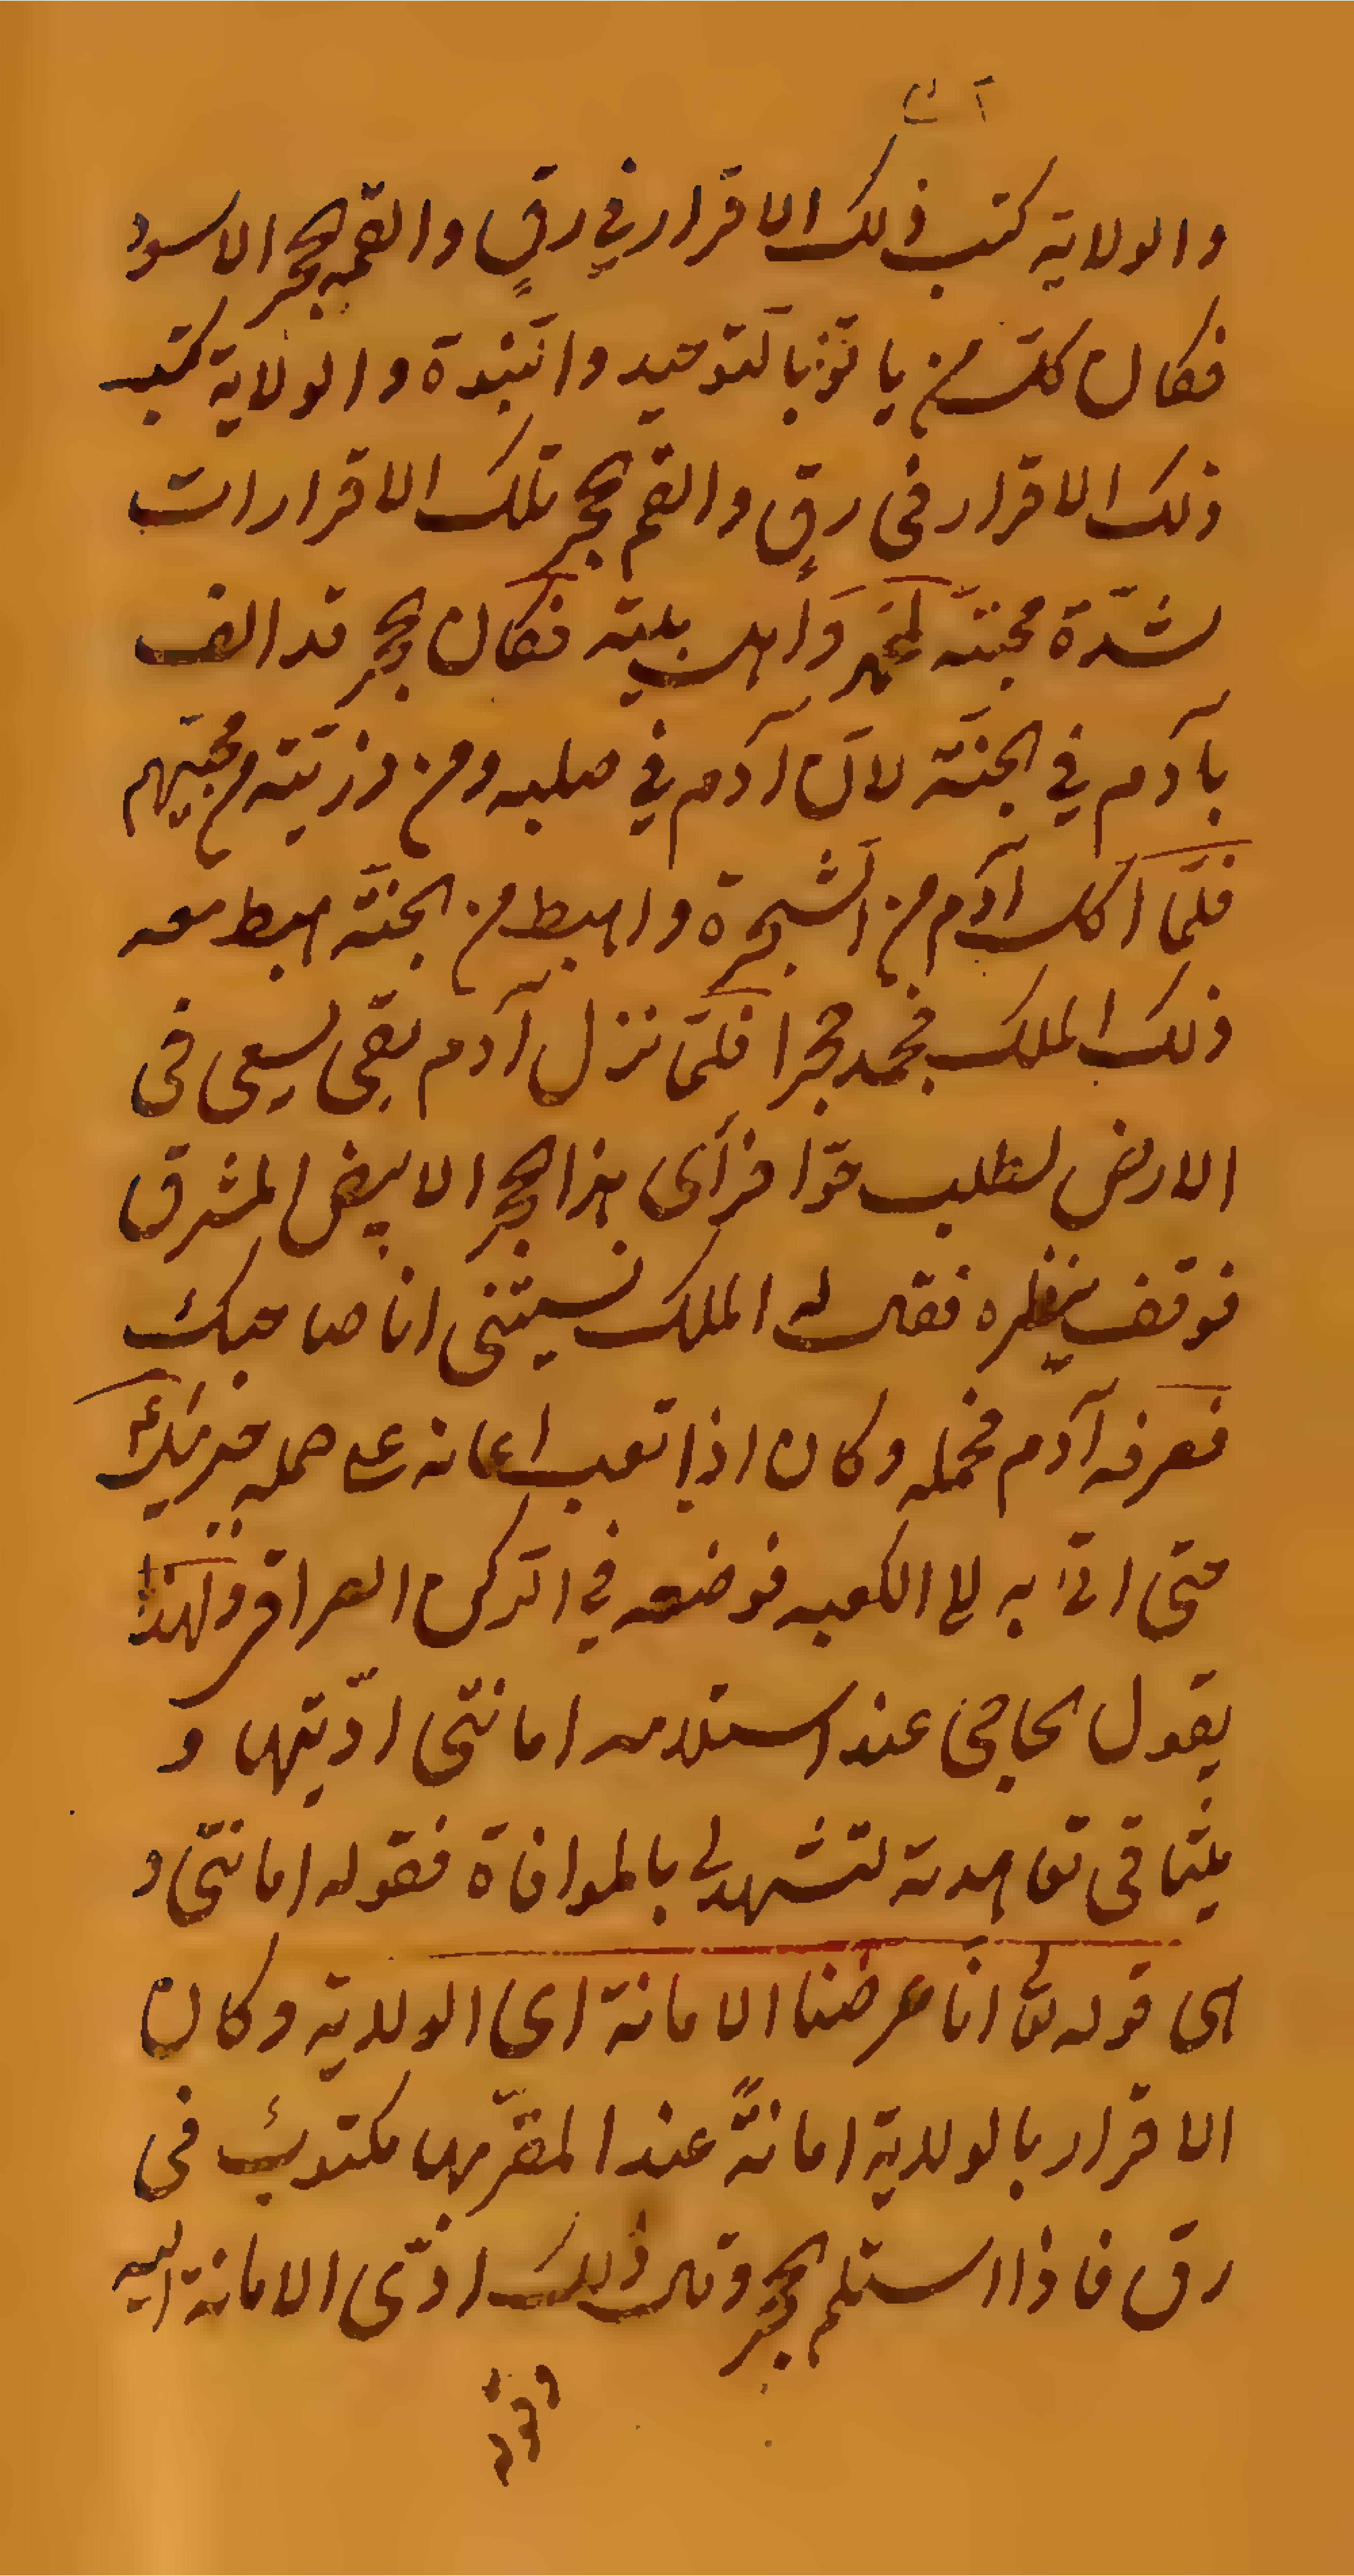 والولاية كتب ذلك الاقرار في رقٍ والقمه الحجر الاسود
فكان كلّ من ياتى بالتوحيد والنّبوة والولاية كتب
ذلك الاقرار فى رقٍ والقم الحجر تلك الاقرارات
لشدّة محبّته لمحمد وَأهل بيته فكان الحجر قد الف
بآدم في الجنّة لانّ آدم في صلبه ومن ذرّيته من محبّيهم
فلمّا اكل آدم من الشّجرة واهبط من الجنّة اهبط معه
ذلك الملك فجمد حجرا فلمّا نزل آدم بقى يسعى فى
الارض لطلب حوّا فرأى هذا الحجر الابيض المشرق
فوقف ينظره فقال له الملك نسيتنى انا صاحبك
فعرفه آدم فحمله وكان اذا تعب اعانه على حمله جبرئيل
حتى اتى به الى الكعبه فوضعه في الركن العراقى ولهذا
يقول الحاجى عند استلامه امانتى ادّيتها و
ميثاقى تعاهدته لتشهد لى بالموافاة فقوله امانتى و
اى قوله تع انّا عرضنا الامانة اى الولاية وكان
الاقرار بالولاية امانةً عند المقرّ بها مكتوب فى
رق فاذا استلم الحجر وقال ذلك ادّى الامانة اليه